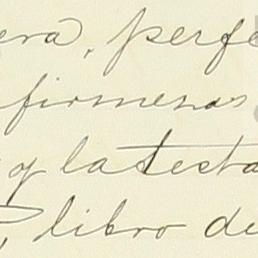 era, perfe
firmenos
y la testa
, libro de